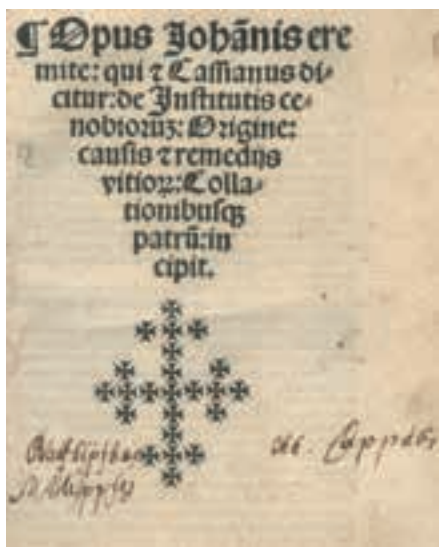 ¶ Opus Johānis ere
mite: qui ⁊ Cassianus di⸗
citur: de Institutis ce⸗
nobioruꝫ: Origine:
causis ⁊ remedijs
vitioꝝ: Colla⸗
tionibusqꝫ
patrū: in
cipit.